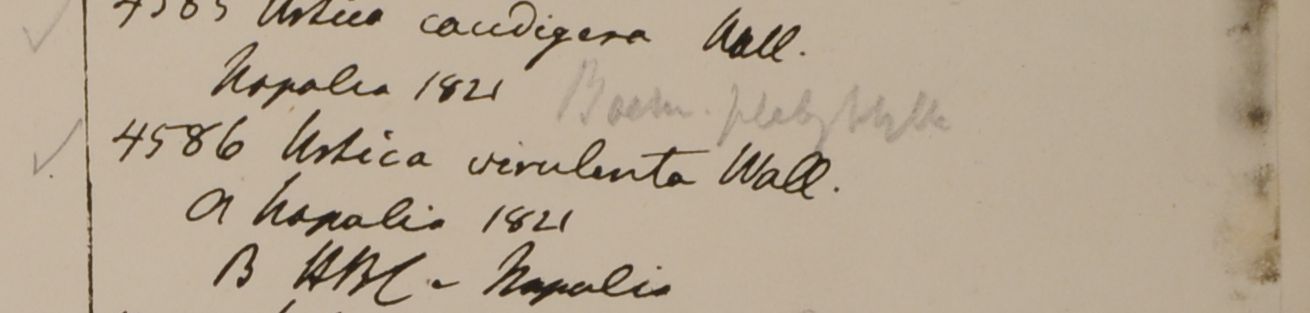 4585 Urtica caudigera Wall.
Napalia 1821 Boehm. platyphylla
4586 Urtica virulenta Wall.
A Napalia 1821
B HBC - Napalia